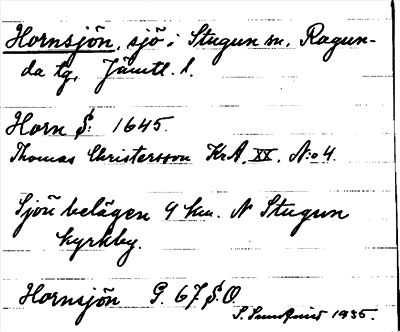 Hornsjön, sjö i Stugun sn. Ragun-
da tg, Jämtl. l.
Horn S: 1645.
Thomas Christersson Kr.A. XX. N:o 4.
Sjön belägen 9 km. N Stugun
kyrkby.
Hornsjön G. 67 S.O
S. Sundquist 1935.